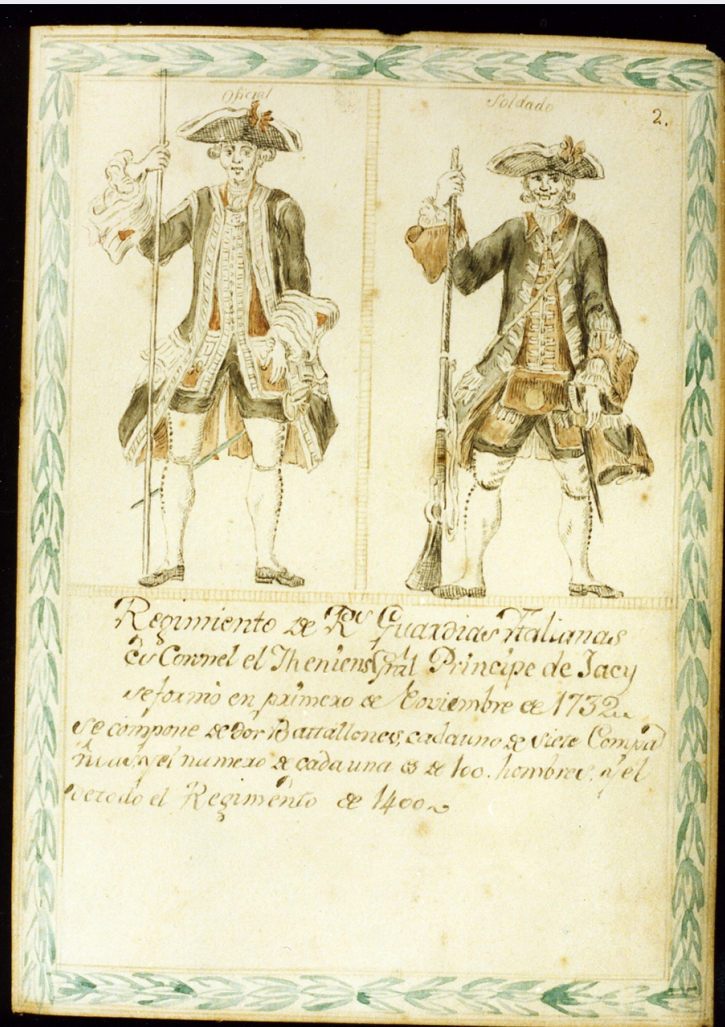 Oficial
Soldado
2.
Regimiento de Rs Guardias Ytalianas
Es Coronel el Theniente Gral Principe de Jacy
se formó en primero de Noviembre de 1732
se compone de dos Battallones, cada uno de siete Compa
ñias, y el numero de cada una es de 100. hombres, y el
de todo el Regimento de 1400